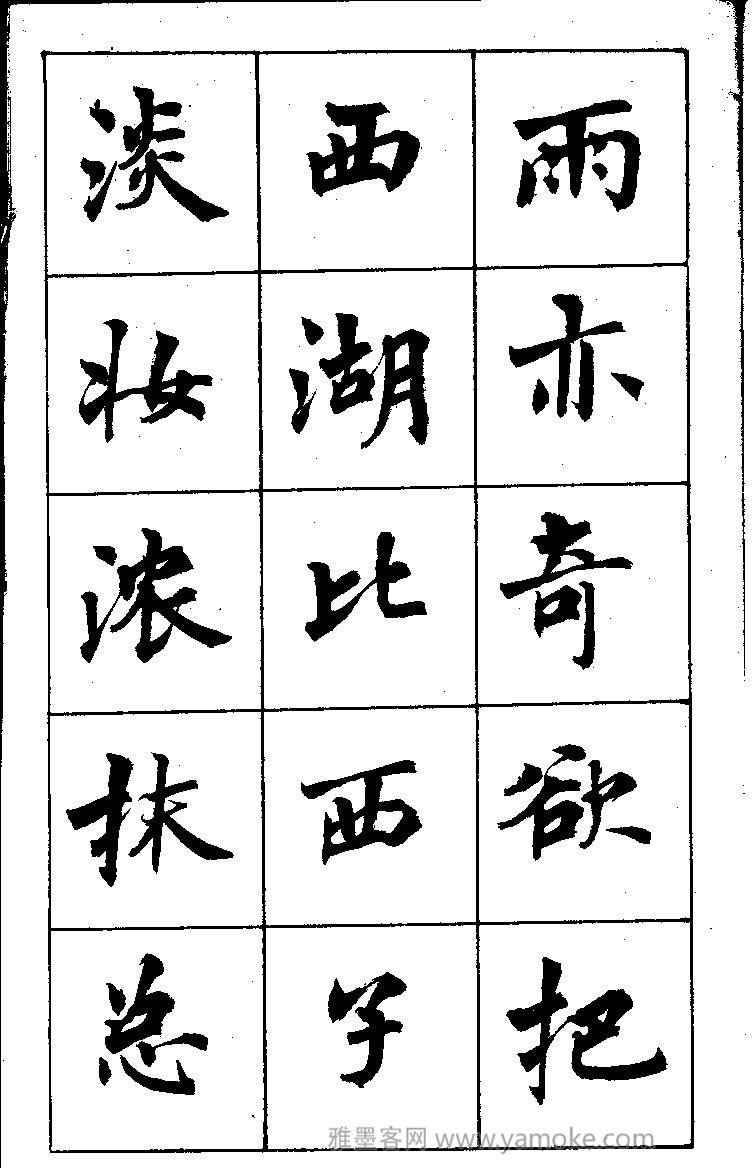 雨亦奇欲把
西湖比西子
淡妆浓抹总
雅墨客网 www.yamoke.com